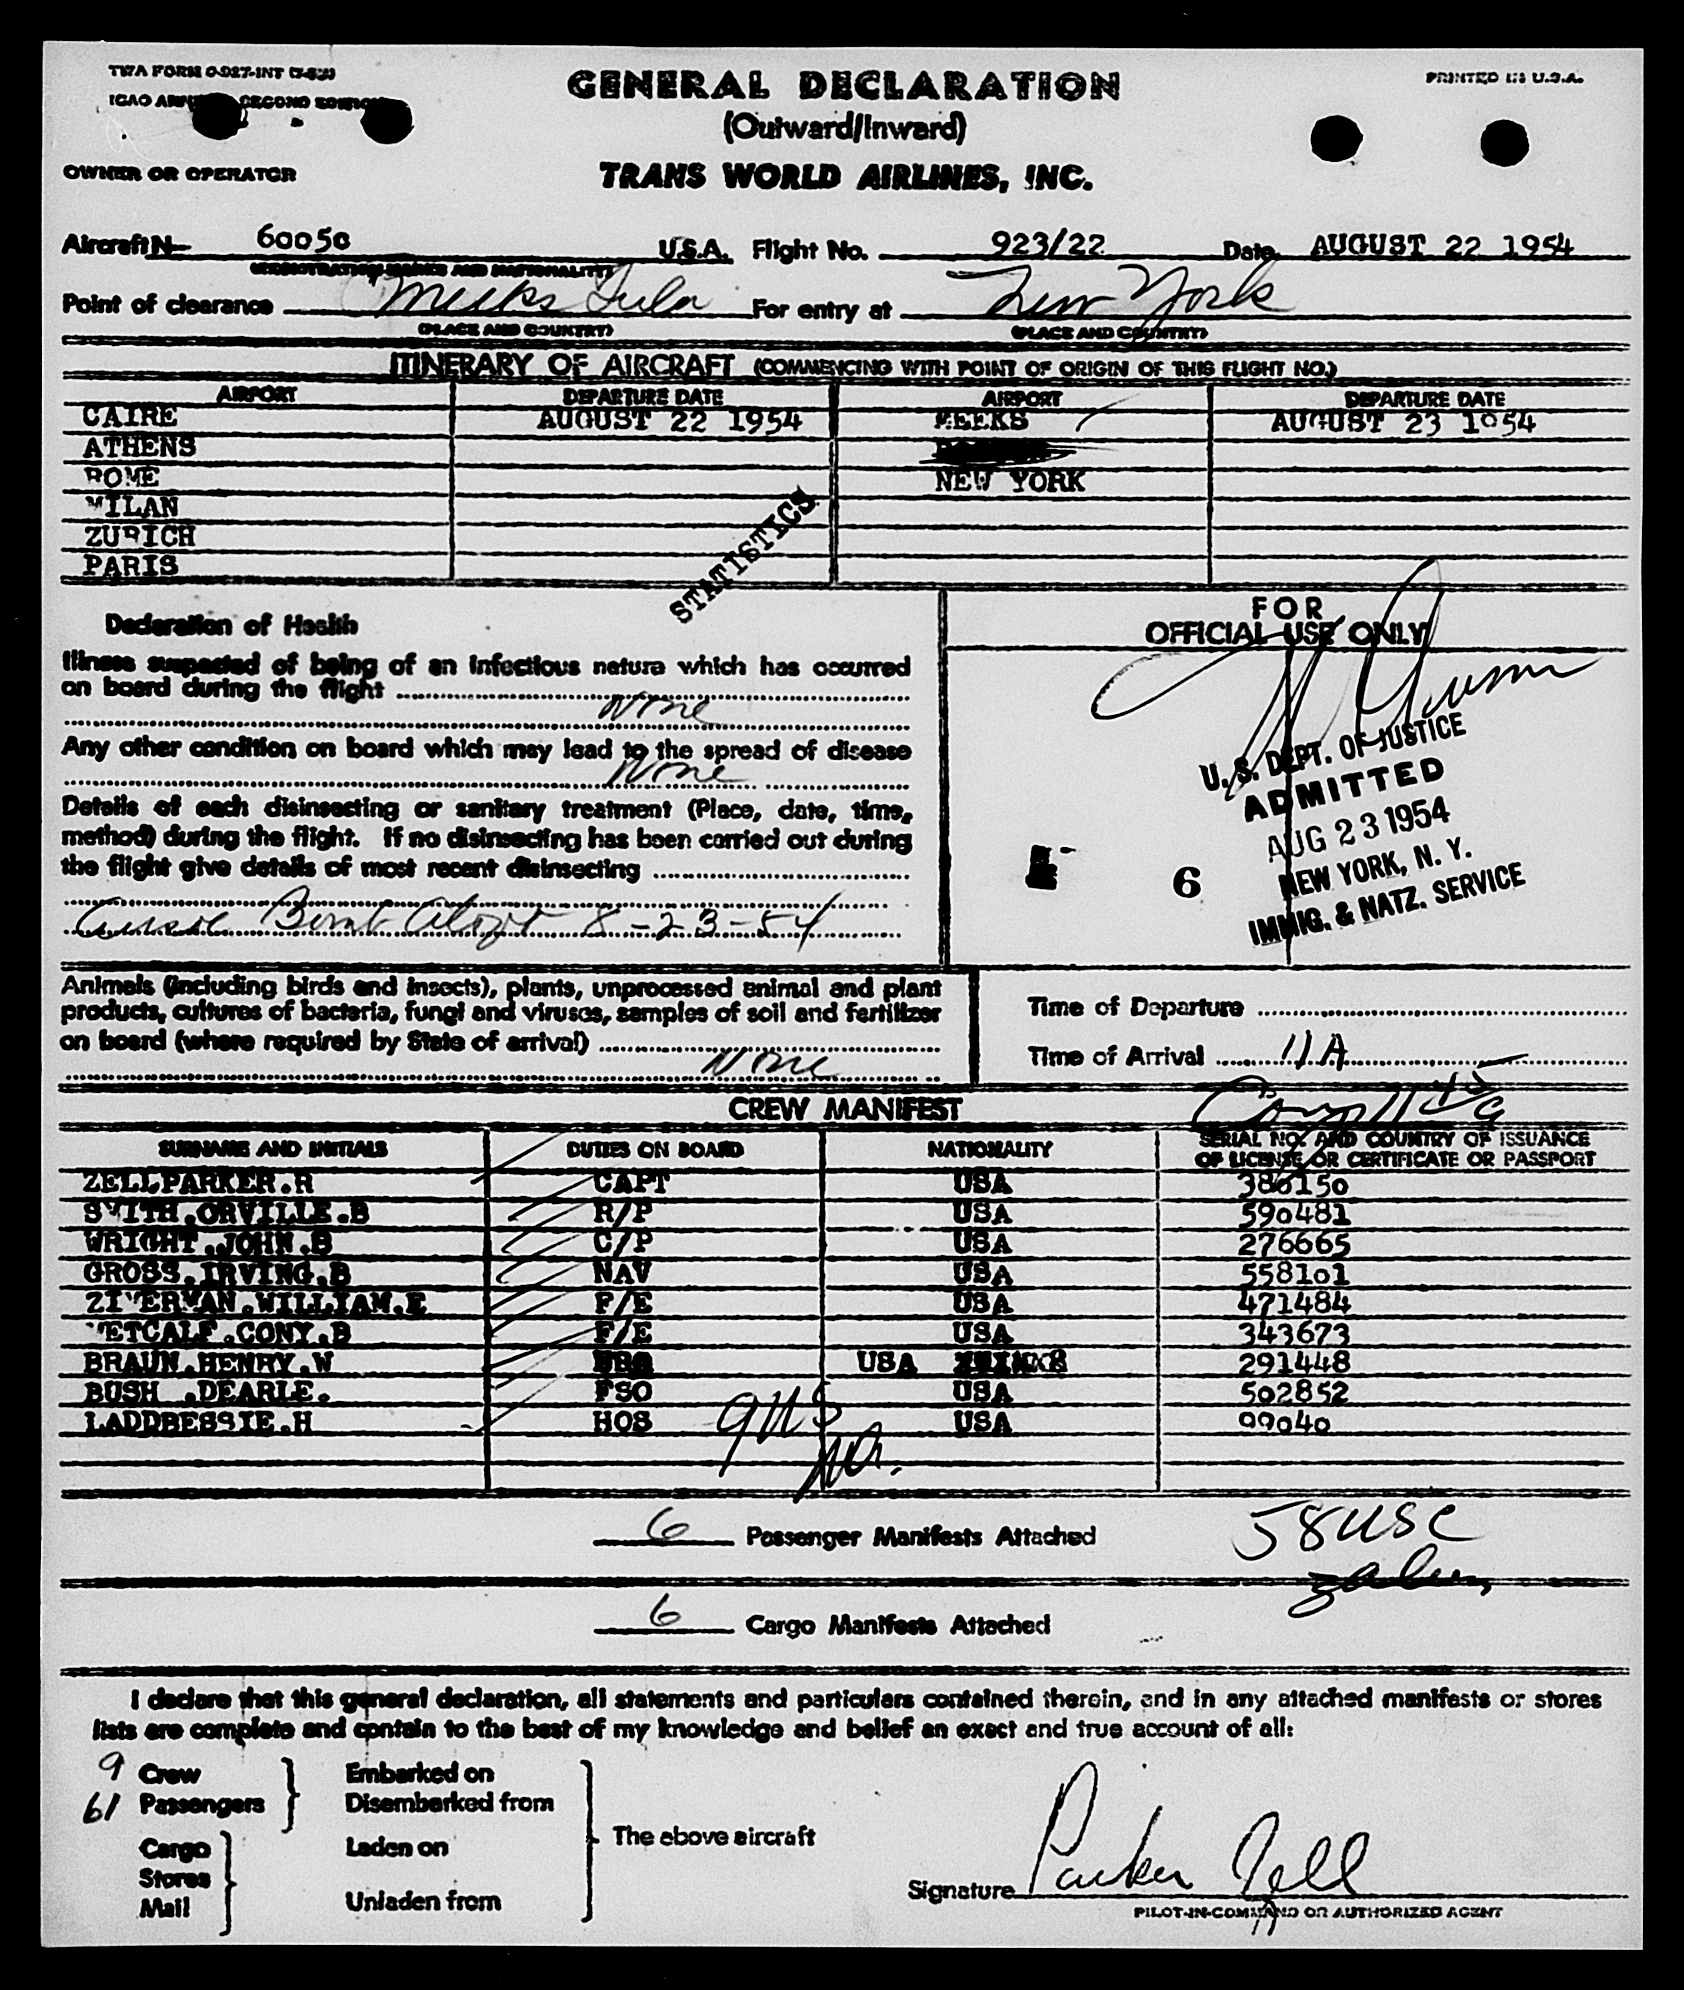 TWA FORM O-927-INT
PRINTED IN U.S.A.
ICAO SECOND EDITION
GENERAL DECLARATION
(Outward/Inward)
OWNER OR OPERATOR
TRANS WORLD AIRLINES, INC.
Aircraft N- 60050 U.S.A. Flight No. 923/22 Date AUGUST 22 1954
(REGISTRATION MARKS AND NATIONALITY)
Point of clearance Meeks For entry at New York
(PLACE AND COUNTRY) (PLACE AND COUNTRY)
ITINERARY OF AIRCRAFT (COMMENCING WITH POINT OF ORIGIN OF THIS FLIGHT NO.)
AIRPORT DEPARTURE DATE AIRPORT DEPARTURE DATE
CAIRE AUGUST 22 1954 MEEKS AUGUST 23 1954
ATHENS
ROME NEW YORK
MILAN
ZURICH
PARIS
STATISTICS
Declaration of Health
Illness suspected of being of an infectious nature which has occurred
on board during the flight
None
Any other condition on board which may lead to the spread of disease
None
Details of each disinsecting or sanitary treatment (Place, date, time,
method) during the flight. If no disinsecting has been carried out during
the flight give details of most recent disinsecting
Bomb 8-23-54
FOR
OFFICIAL USE ONLY
U. S. DEPT. OF JUSTICE
ADMITTED
AUG 23 1954
NEW YORK, N. Y.
IMMIG. & NATZ. SERVICE
6
Animals (including birds and insects), plants, unprocessed animal and plant
products, cultures of bacteria, fungi and viruses, samples of soil and fertilizer
on board (where required by State of arrival)
None
Time of Departure
Time of Arrival 11A
CREW MANIFEST
SURNAME AND INITIALS DUTIES ON BOARD NATIONALITY SERIAL NO. AND COUNTRY OF ISSUANCE
OF LICENSE OR CERTIFICATE OR PASSPORT
ZELLPARKER.R CAPT USA 386150
SMITH.ORVILLE.B R/P USA 590481
WRIGHT.JOHN.B C/P USA 276665
GROSS.IRVING.B NAV USA 558101
ZIMERMAN.WILLIAM.E F/E USA 471484
METCALF.CONY.B F/E USA 343673
BRAUN.HENRY.W USA 291448
BUSH .DEARLE. FSO USA 502852
LADDBESSIE.H HOS USA 99040
9US
6 Passenger Manifests Attached
58 USC
6 Cargo Manifests Attached
I declare that this general declaration, all statements and particulars contained therein, and in any attached manifests or stores
lists are complete and contain to the best of my knowledge and belief an exact and true account of all:
9 Crew
61 Passengers
Embarked on
Disembarked from
Cargo
Stores
Mail
Laden on
Unladen from
The above aircraft
Signature Parker Zell
PILOT-IN-COMMAND OR AUTHORIZED AGENT